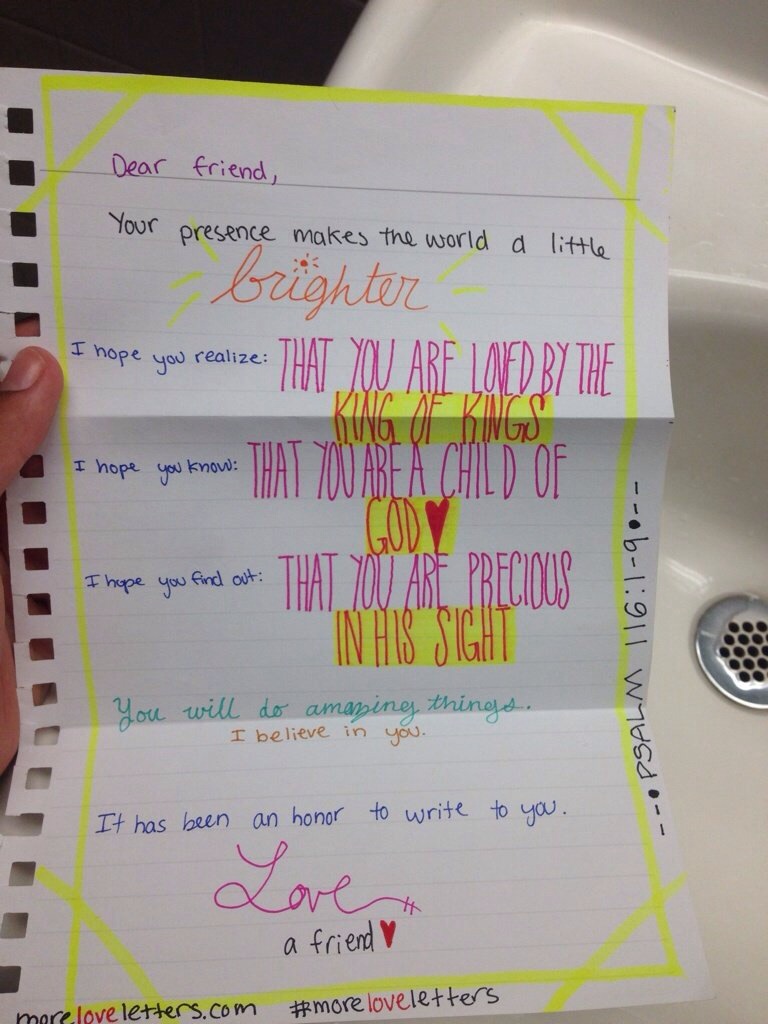 Dear friend,
Your presence makes the world a little
brighter
I hope you realize: THAT YOU ARE LOVED BY THE
KING OF KINGS
I hope you know: THAT YOU ARE A CHILD OF
GOD♥
I hope you find out: THAT YOU ARE PRECIOUS
IN HIS SIGHT
You will do amazing things.
I believe in you.
It has been an honor to write to you.
Love
a friend♥
moreloveletters.com #moreloveletters
--•PSALM 116:1-9•--